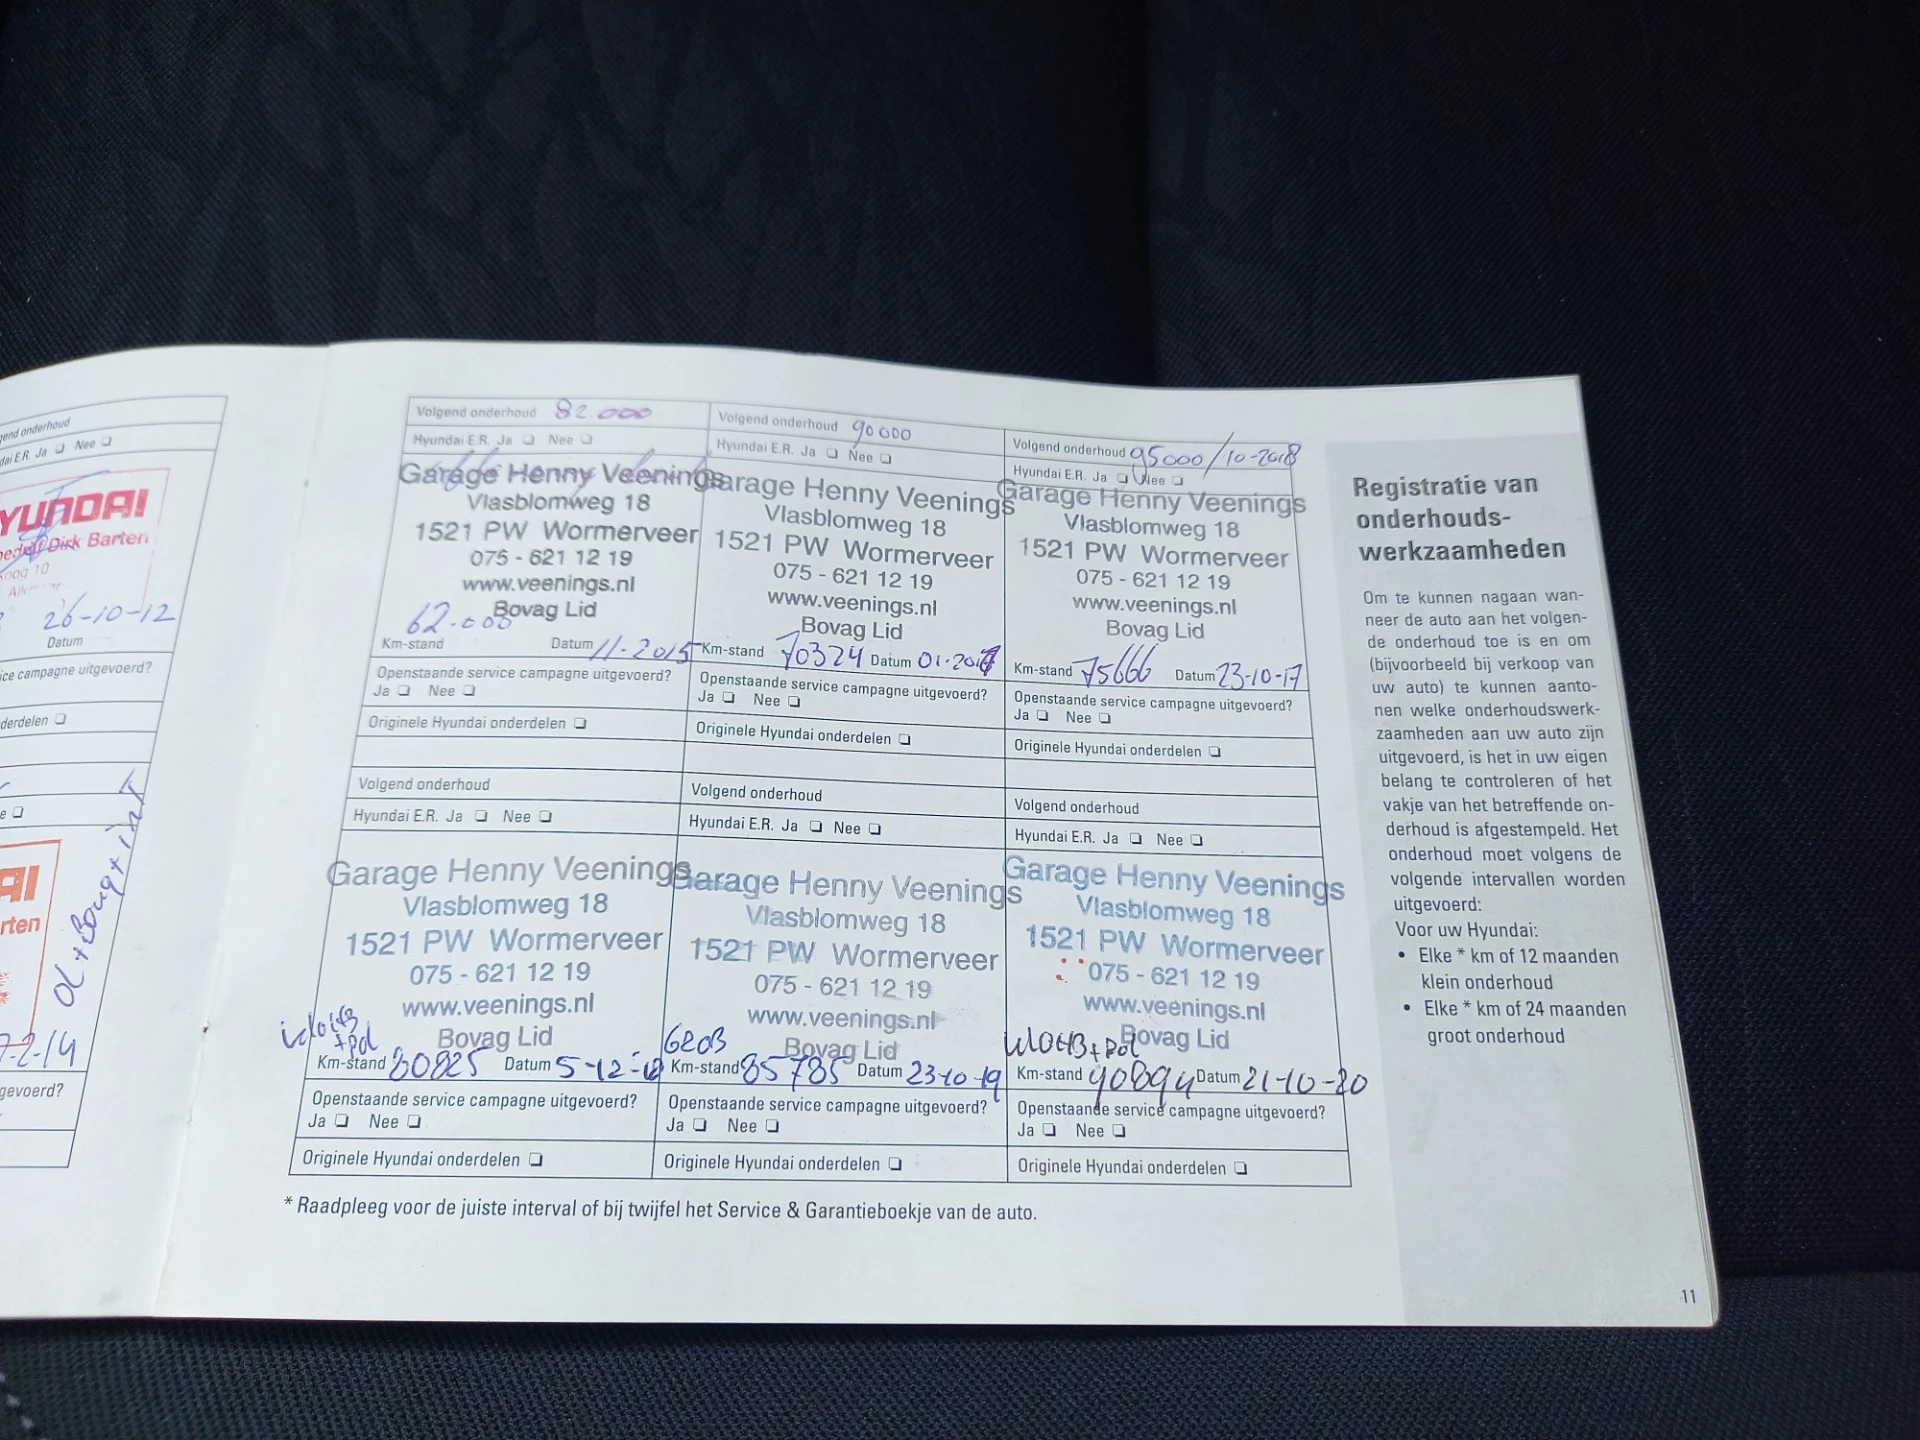 gend onderhoud
dai E.R. Ja Nee
YUNDAI
bedrijf Dirk Barten
Koog 10
26-10-12
Datum
ice campagne uitgevoerd?
derdelen
e
AI
rten
2-2-14
gevoerd?
Volgend onderhoud 82.000
Hyundai E.R. Ja Nee
Garage Henny Veenings
Vlasblomweg 18
1521 PW Wormerveer
075 - 621 12 19
www.veenings.nl
Bovag Lid
62.000
Km-stand Datum 11-2015
Openstaande service campagne uitgevoerd?
Ja Nee
Originele Hyundai onderdelen
Volgend onderhoud 90000
Hyundai E.R. Ja Nee
Garage Henny Veenings
Vlasblomweg 18
1521 PW Wormerveer
075 - 621 12 19
www.veenings.nl
Bovag Lid
Km-stand 70324 Datum 01-2017
Openstaande service campagne uitgevoerd?
Ja Nee
Originele Hyundai onderdelen
Volgend onderhoud 95000/10-2018
Hyundai E.R. Ja Nee
Garage Henny Veenings
Vlasblomweg 18
1521 PW Wormerveer
075 - 621 12 19
www.veenings.nl
Bovag Lid
Km-stand 75666 Datum 23-10-17
Openstaande service campagne uitgevoerd?
Ja Nee
Originele Hyundai onderdelen
Volgend onderhoud
Hyundai E.R. Ja Nee
Garage Henny Veenings
Vlasblomweg 18
1521 PW Wormerveer
075 - 621 12 19
www.veenings.nl
Bovag Lid
Km-stand 80825 Datum 5-12-18
Openstaande service campagne uitgevoerd?
Ja Nee
Originele Hyundai onderdelen
Volgend onderhoud
Hyundai E.R. Ja Nee
Garage Henny Veenings
Vlasblomweg 18
1521 PW Wormerveer
075 - 621 12 19
www.veenings.nl
Bovag Lid
Km-stand 85785 Datum 23-10-19
Openstaande service campagne uitgevoerd?
Ja Nee
Originele Hyundai onderdelen
Volgend onderhoud
Hyundai E.R. Ja Nee
Garage Henny Veenings
Vlasblomweg 18
1521 PW Wormerveer
075 - 621 12 19
www.veenings.nl
Bovag Lid
Km-stand 90894 Datum 21-10-20
Openstaande service campagne uitgevoerd?
Ja Nee
Originele Hyundai onderdelen
* Raadpleeg voor de juiste interval of bij twijfel het Service & Garantieboekje van de auto.
Registratie van
onderhouds-
werkzaamheden
Om te kunnen nagaan wan-
neer de auto aan het volgen-
de onderhoud toe is en om
(bijvoorbeeld bij verkoop van
uw auto) te kunnen aanto-
nen welke onderhoudswerk-
zaamheden aan uw auto zijn
uitgevoerd, is het in uw eigen
belang te controleren of het
vakje van het betreffende on-
derhoud is afgestempeld. Het
onderhoud moet volgens de
volgende intervallen worden
uitgevoerd:
Voor uw Hyundai:
• Elke * km of 12 maanden
klein onderhoud
• Elke * km of 24 maanden
groot onderhoud
11